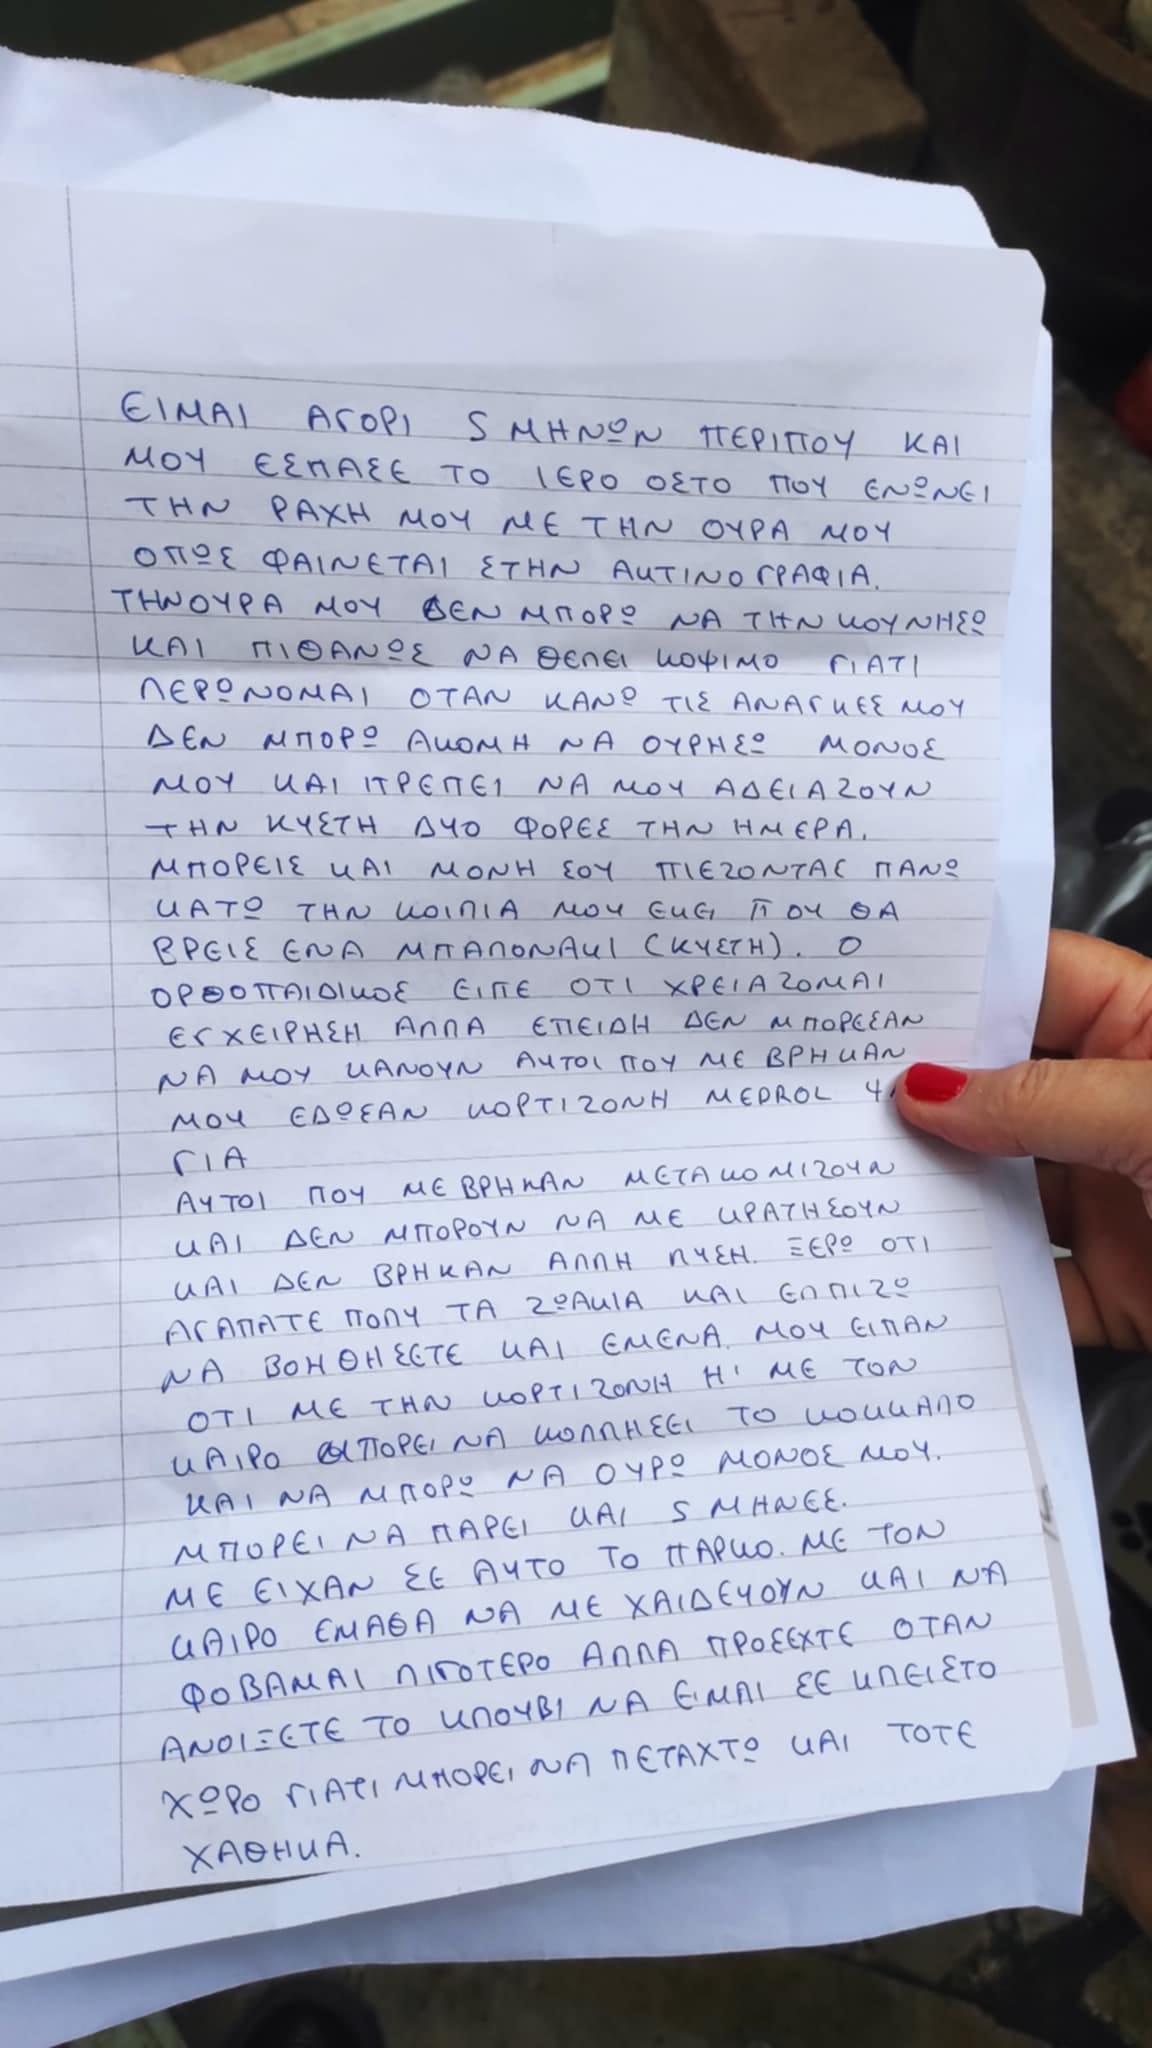 ΕΙΜΑΙ ΑΓΟΡΙ 5 ΜΗΝΩΝ ΠΕΡΙΠΟΥ ΚΑΙ
ΜΟΥ ΕΣΠΑΣΕ ΤΟ ΙΕΡΟ ΟΣΤΟ ΠΟΥ ΕΝΩΝΕΙ
ΤΗΝ ΡΑΧΗ ΜΟΥ ΜΕ ΤΗΝ ΟΥΡΑ ΜΟΥ
ΟΠΩΣ ΦΑΙΝΕΤΑΙ ΣΤΗΝ ΑΚΤΙΝΟΓΡΑΦΙΑ.
ΤΗΝ ΟΥΡΑ ΜΟΥ ΔΕΝ ΜΠΟΡΩ ΝΑ ΤΗΝ ΚΟΥΝΗΣΩ
ΚΑΙ ΠΙΘΑΝΩΣ ΝΑ ΘΕΛΕΙ ΚΟΨΙΜΟ ΓΙΑΤΙ
ΛΕΡΩΝΟΜΑΙ ΟΤΑΝ ΚΑΝΩ ΤΙΣ ΑΝΑΓΚΕΣ ΜΟΥ
ΔΕΝ ΜΠΟΡΩ ΑΚΟΜΗ ΝΑ ΟΥΡΗΣΩ ΜΟΝΟΣ
ΜΟΥ ΚΑΙ ΠΡΕΠΕΙ ΝΑ ΜΟΥ ΑΔΕΙΑΖΟΥΝ
ΤΗΝ ΚΥΣΤΗ ΔΥΟ ΦΟΡΕΣ ΤΗΝ ΗΜΕΡΑ.
ΜΠΟΡΕΙΣ ΚΑΙ ΜΟΝΗ ΣΟΥ ΠΙΕΖΟΝΤΑΣ ΠΑΝΩ
ΚΑΤΩ ΤΗΝ ΚΟΙΛΙΑ ΜΟΥ ΕΚΕΙ ΠΟΥ ΘΑ
ΒΡΕΙΣ ΕΝΑ ΜΠΑΛΟΝΑΚΙ (ΚΥΣΤΗ). Ο
ΟΡΘΟΠΑΙΔΙΚΟΣ ΕΙΠΕ ΟΤΙ ΧΡΕΙΑΖΟΜΑΙ
ΕΓΧΕΙΡΗΣΗ ΑΛΛΑ ΕΠΕΙΔΗ ΔΕΝ ΜΠΟΡΕΣΑΝ
ΝΑ ΜΟΥ ΚΑΝΟΥΝ ΑΥΤΟΙ ΠΟΥ ΜΕ ΒΡΗΚΑΝ
ΜΟΥ ΕΔΩΣΑΝ ΚΟΡΤΙΖΟΝΗ MEDROL
ΓΙΑ
ΑΥΤΟΙ ΠΟΥ ΜΕ ΒΡΗΚΑΝ ΜΕΤΑΚΟΜΙΖΟΥΝ
ΚΑΙ ΔΕΝ ΜΠΟΡΟΥΝ ΝΑ ΜΕ ΚΡΑΤΗΣΟΥΝ
ΚΑΙ ΔΕΝ ΒΡΗΚΑΝ ΑΛΛΗ ΛΥΣΗ. ΞΕΡΩ ΟΤΙ
ΑΓΑΠΑΤΕ ΠΟΛΥ ΤΑ ΖΩΑΚΙΑ ΚΑΙ ΕΛΠΙΖΩ
ΝΑ ΒΟΗΘΗΣΕΤΕ ΚΑΙ ΕΜΕΝΑ. ΜΟΥ ΕΙΠΑΝ
ΟΤΙ ΜΕ ΤΗΝ ΚΟΡΤΙΖΟΝΗ Η' ΜΕ ΤΟΝ
ΚΑΙΡΟ ΜΠΟΡΕΙ ΝΑ ΚΟΛΛΗΣΕΙ ΤΟ ΚΟΚΚΑΛΟ
ΚΑΙ ΝΑ ΜΠΟΡΩ ΝΑ ΟΥΡΩ ΜΟΝΟΣ ΜΟΥ.
ΜΠΟΡΕΙ ΝΑ ΠΑΡΕΙ ΚΑΙ 5 ΜΗΝΕΣ.
ΜΕ ΕΙΧΑΝ ΣΕ ΑΥΤΟ ΤΟ ΠΑΡΚΟ. ΜΕ ΤΟΝ
ΚΑΙΡΟ ΕΜΑΘΑ ΝΑ ΜΕ ΧΑΙΔΕΥΟΥΝ ΚΑΙ ΝΑ
ΦΟΒΑΜΑΙ ΛΙΓΟΤΕΡΟ ΑΛΛΑ ΠΡΟΣΕΧΤΕ ΟΤΑΝ
ΑΝΟΙΞΕΤΕ ΤΟ ΚΛΟΥΒΙ ΝΑ ΕΙΜΑΙ ΣΕ ΚΛΕΙΣΤΟ
ΧΩΡΟ ΓΙΑΤΙ ΜΠΟΡΕΙ ΝΑ ΠΕΤΑΧΤΩ ΚΑΙ ΤΟΤΕ
ΧΑΘΗΚΑ.